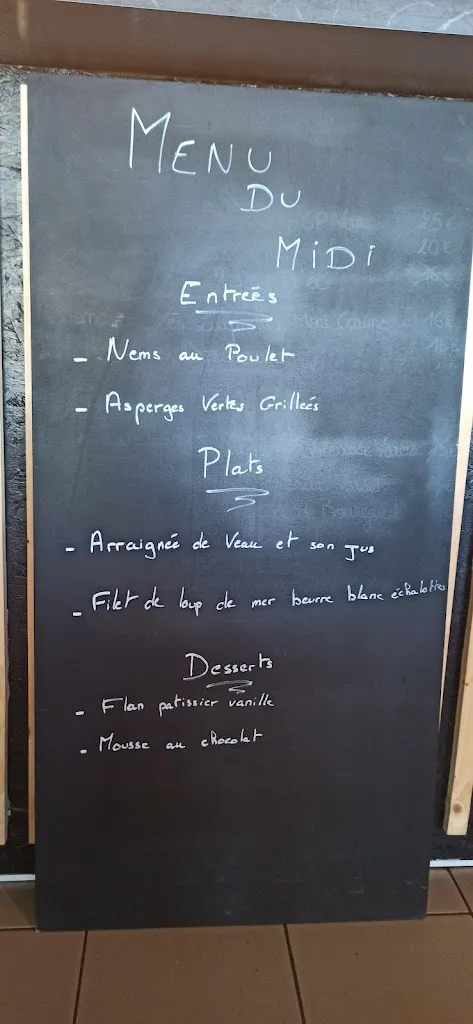 MENU
DU
MiDi
Entreés
- Nems au Poulet
- Asperges Vertes Grilleés
Plats
- Arraigneé de Veau et son jus
- Filet de loup de mer beurre blanc échalottes
Desserts
- Flan patissier vanille
- Mousse au chocolat